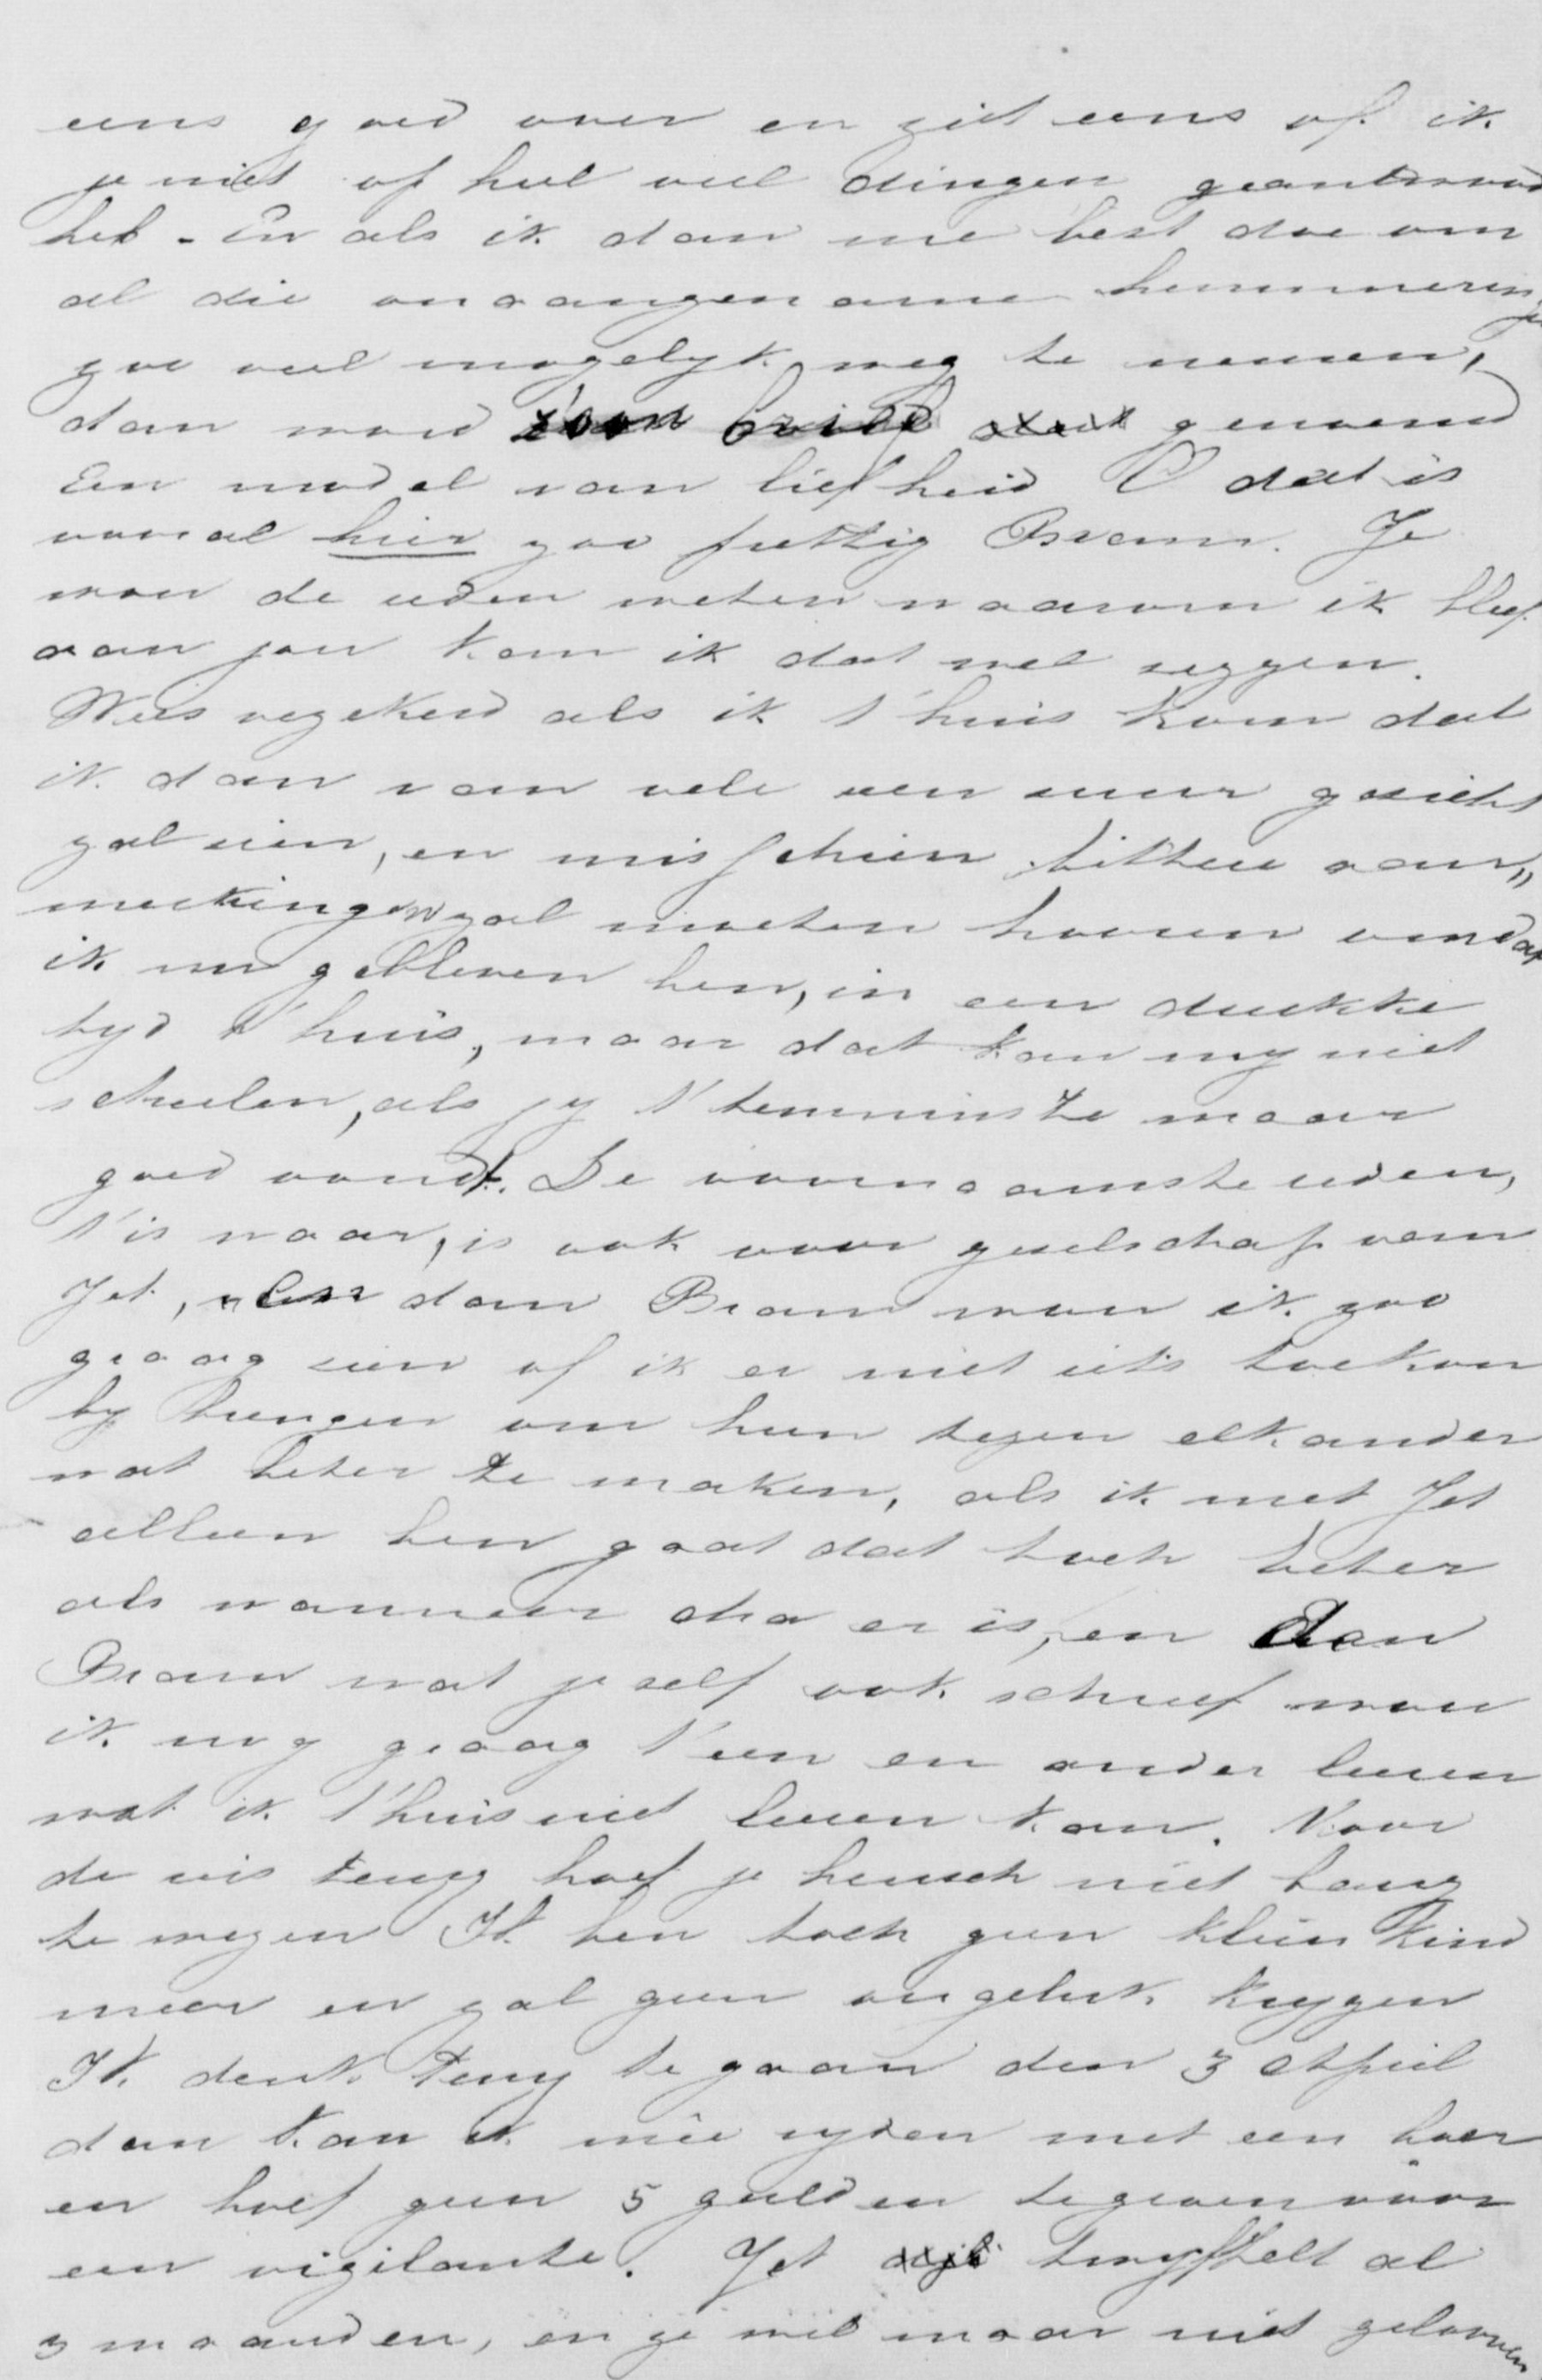 eens goed over en ziet eens of ik
je niet of heel veel dingen geantwoord
heb - En als ik dan me best doe om
al die onaangename herinneringen
zoo veel mogelyk weg te nemen,
dan word zoon brief genoemd
Een model van liefheid O dat is
vooral hier zoo prettig Bram. Je
wou de reden weten waarom ik bleef
aan jou kan ik dat wel zeggen.
Wees verzekerd als ik t'huis kom dat
ik dan van vele een zuur gezicht
zal zien, en misschien bittere aan„
merkingen zal moeten hooren omdat
ik nu gebleven ben, in een drukke
tyd t'huis, maar dat kan my niet
scheelen, als jy t' tenminste maar
goed vondt. De voornaamste reden,
t'is waar, is ook voor gezelschap van
Jet, en dan Bram wou ik zoo
graag zien of ik er niet iets toe kan
by brengen om hun tegen elkander
wat beter te maken, als ik met Jet
alleen ben gaat dat toch beter
als wanneer dra er is, en dan
Bram wat je self ook schreef wou
ik nog graag t'een en ander leeren
wat ik t'huis niet leeren kan. Voor
de reis terug hoef je heusch niet bang
te wezen Ik ben toch geen klein kind
meer en zal geen ongeluk krygen
Ik denk terug te gaan den 3 April
dan kan ik mêe ryden met een heer
en hoef geen 5 gulden te geven voor
een vigilante. Jet twyffelt al
3 maanden, en ze wil maar niet gelooven